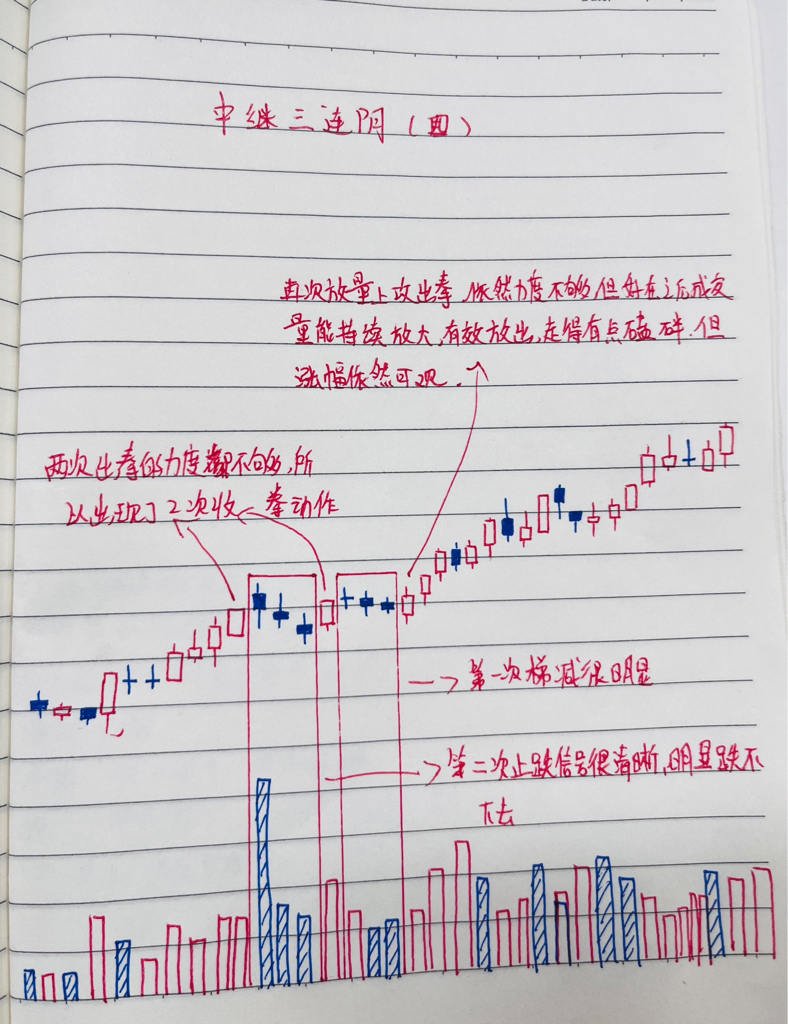 中继三连阴（四）
再次放量上攻出拳，依然力度不够，但好在之后成交
量能持续放大，有效放出，走得有点磕碰．但
涨幅依然可观．
两次出拳的力度都不够，所
以出现了2次收拳动作
第一次梯减很明显
第二次止跌信号很清晰，明显跌不
下去